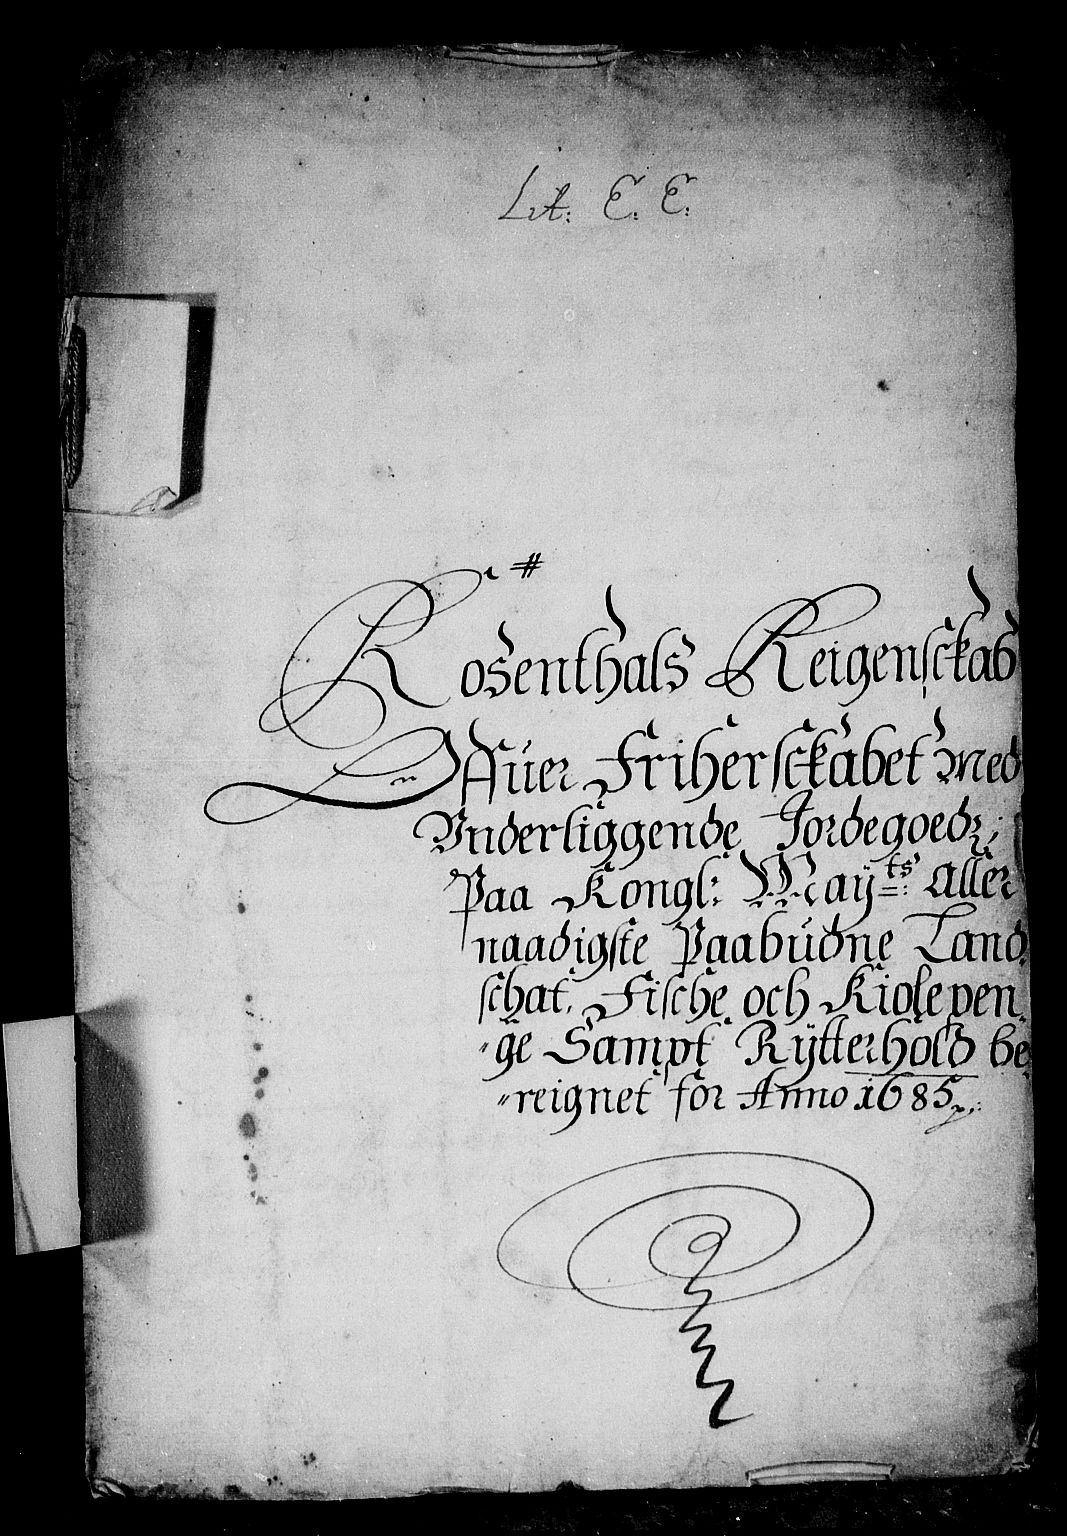 Lit: E: E:
Rosenthals Reigensckab
Offuer Friherschkabet med
Vnderliggende Jordegoedz;
Paa Kongl: Mayts: aller
naadigste Paabudne Land,
schat, Fische och Kiølepen,
ge Sampt Rytterhold be,
reignet for Anno 1685